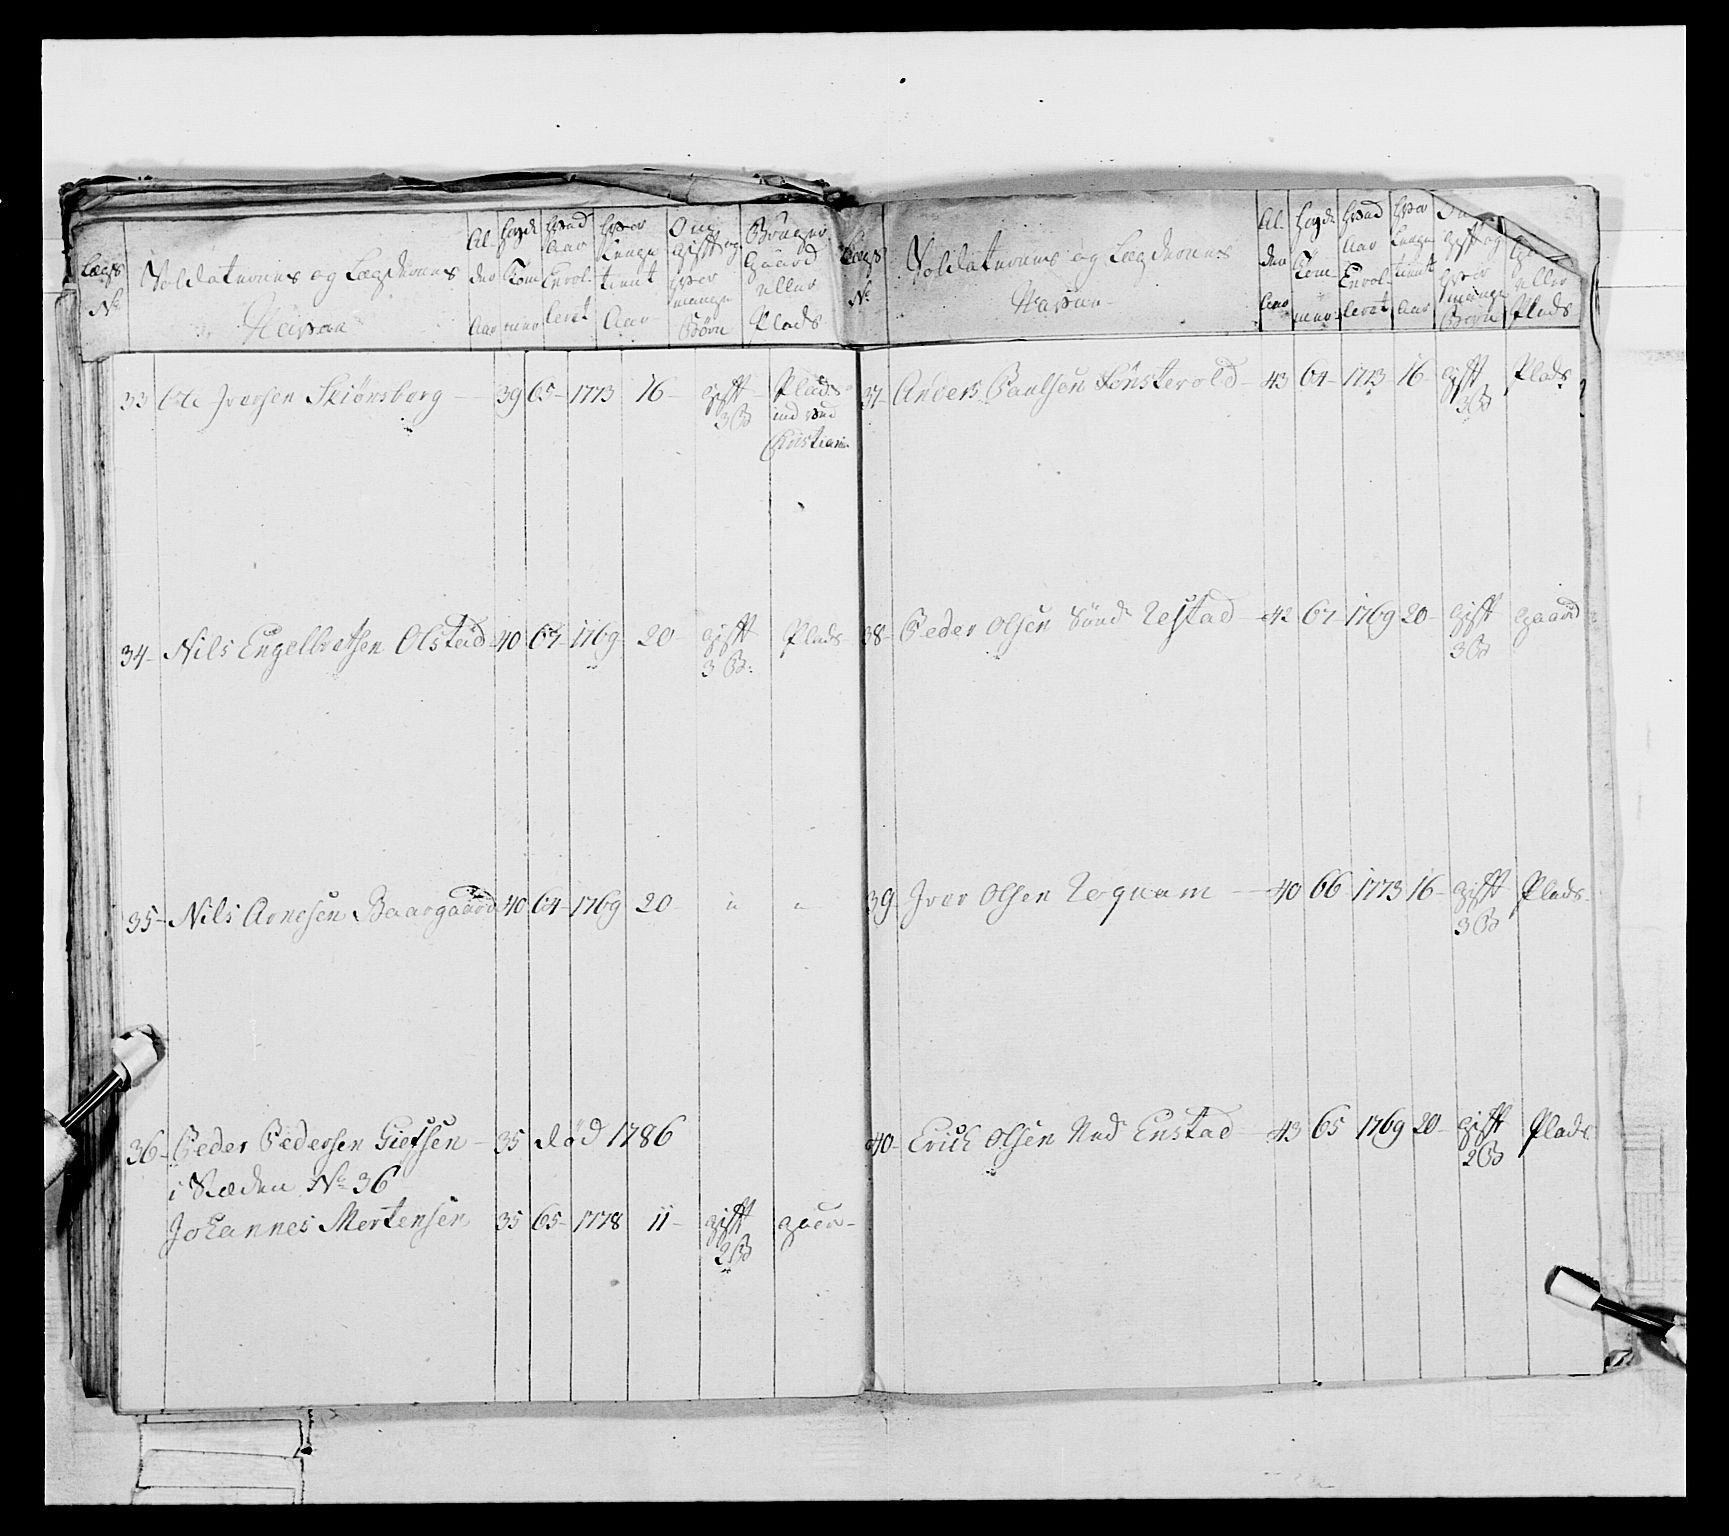 Lægs No
Soldaternes og Lægdernes Navne
Al- der Aar
Høyde Tom- mer
Hvad Aar Enrol- leret
Hvor Længe tient Aar
Om gifft og Hvor mange Børn
Bruger Gaard eller Plads
33 Ole Jversen Skiønsberg 39 65 1773 16 gifft 3 B Plads ind ved Christiania
34 Nils Engelbretsen Olstad 40 67 1769 20 gifft 3 B: Plads
35 Nils Arnesen Baargaard 40 64 1769 20 " "
36 Peder Pedersen Gietsen 35 død 1786
i Stæden No 36
Johannes Mortensen 35 65 1778 11 gifft 2 B
Lægs No
Soldaternes og Lægdernes Navne
Al- der Aar
Høyde Tom- mer
Hvad Aar Enrol- leret
Hvor Længe tient Aar
gifft og Hvor mange Børn
eller Plads
37 Anders Paulsen 43 64 1773 16 gifft 3 B Plads
38 Peder Olsen Sönd Restad 42 67 1769 20 gifft 3 B gaard
39 Jver Olsen 40 66 1773 16 gifft 3 B Plads
40 Erich Olsen Ned Enstad 43 65 1769 20 gifft 2 B Plads